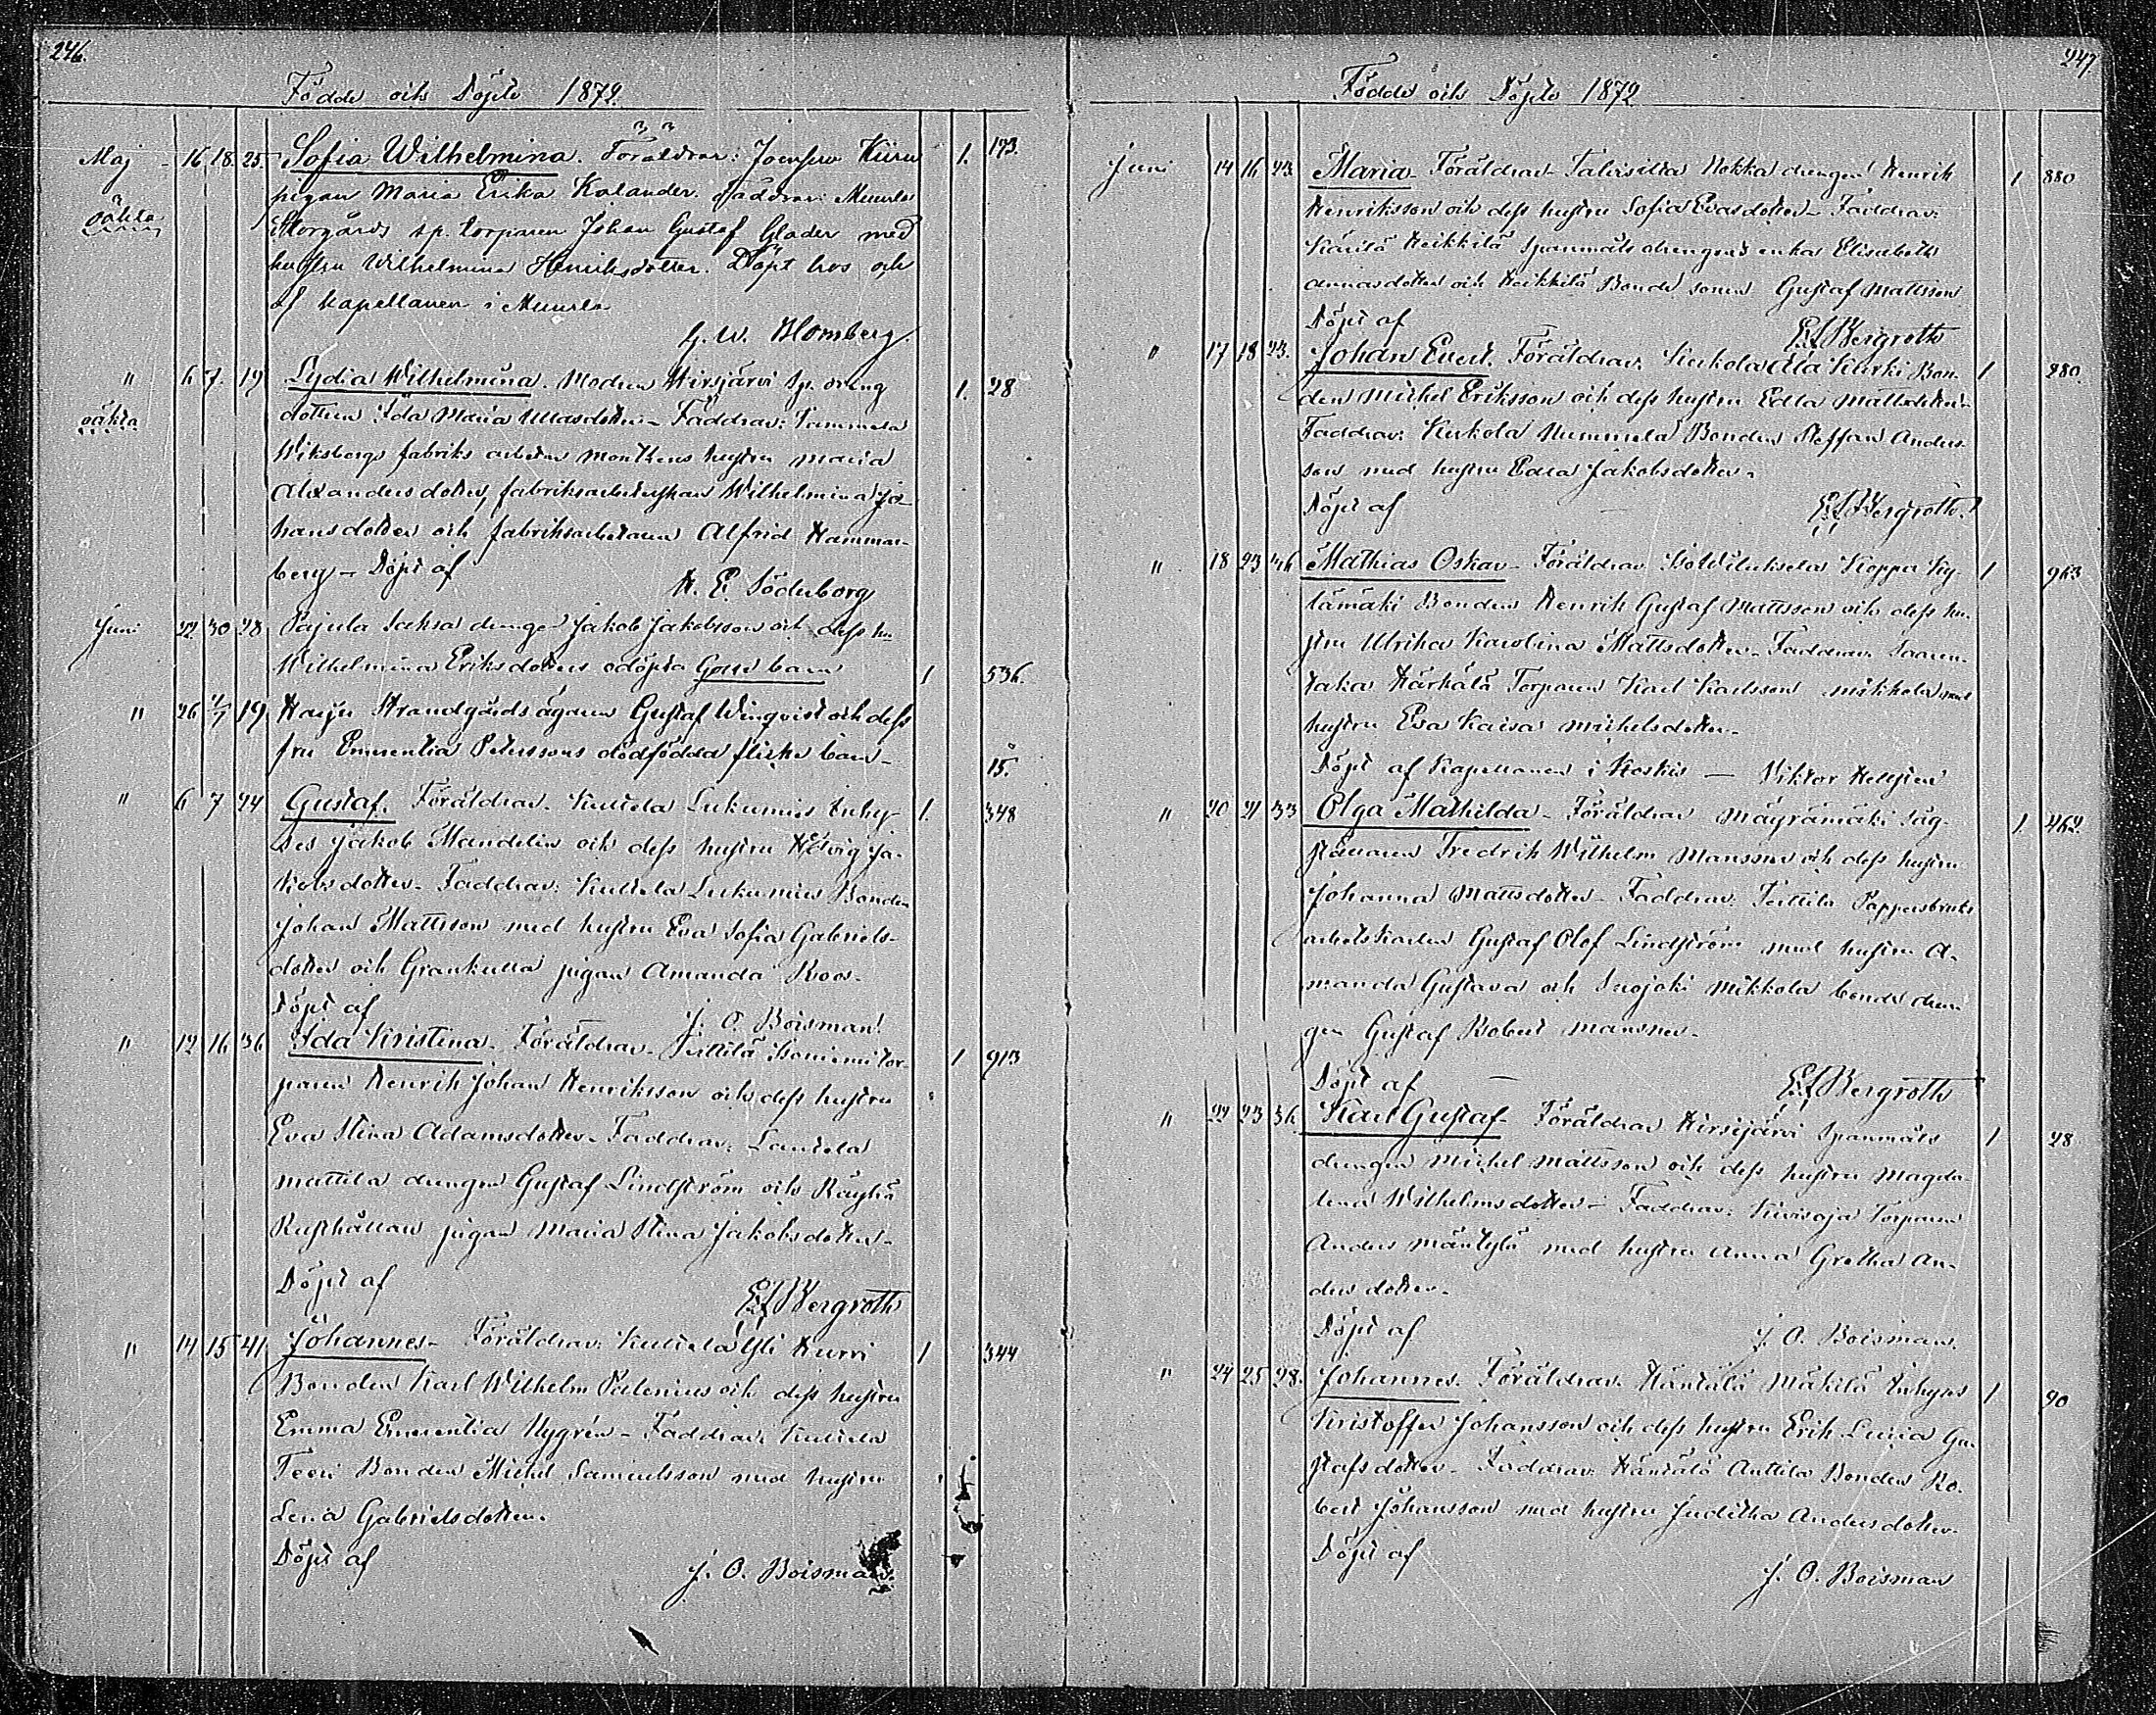 246.
Födde och Döpte 1872.
Maj 16 18 25. Sofia Wilhelmina. Föräldrar: Joensuu Kiiru 1. 193.
oäkta pigan Maria Erika Kalander. Faddrar: Muurla
Storgårds sp. torparen Johan Gustaf Glader med
hustru Wilhelmina Henriksdotter. Döpt hos och
af kapellanen i Muurla
G. W. Blomberg.
" 6 7. 19 Lydia Wilhelmina. Modren Hirsjärvi Sp. dreng 1. 28
oäkta dottren Ida Maria Ullasdotter – Faddrar: Tammela
Wiksbergs fabriks arbetar hustru Maria
Alexandersdotter, fabriksarbeterskan Wilhelmina Jo-
hansdotter och fabriksarbetaren Alfrid Hammar-
berg – Döpt af
H. E. Söderborg
Juni 22 30 28 Pajula Saksa drengen Jakob Jakobsson och dess hu
Wilhelmina Eriksdotters odöpta Gosse barn 1 536.
" 26 1/7 19 Harju Strandgårds ägaren Gustaf Winqvist och dess
fru Emerentia Peterssons dödfödda flicko barn – 15.
" 6 7 24 Gustaf. Föräldrar. Kulkila Lukumies Inhy- 1. 348
ses Jakob Mandelin och dess hustru Hedvig Ja-
kobsdotter – Faddrar: Lukumies Bonden
Johan Mattsson med hustru Eva Sofia Gabriels-
dotter och Grankulla pigan Amanda Roos.
Döpt af
J. O. Boisman.
" 12 16 36 Ida Kristina – Föräldrar – Perttilä Isoniemi tor- 1 913
paren Henrik Johan Henriksson och dess hustru
Eva Stina Adamsdotter – Faddrar:
Mattila drengen Gustaf Lindström och
Rusthållare pigan Maria Stina Jakobsdotter –
Döpt af
E. J. Bergroth
" 14 15 41 Johannes – Föräldrar: Yli Kurri 1 344
Bonden Karl Wilhelm Palenius och dess hustru
Emma Emerentia Nygrén – Faddrar:
Teeri Bonden Michel Samuelsson med hustru
Lena Gabrielsdotter.
Döpt af
J. O. Boisman.
247.
Födde och Döpte 1872
Juni 14 16 23 Maria – Föräldrar – Talvisilta Nokka drengen Henrik 1 880
Henriksson och dess hustru Sofia Evasdotter – Faddrar:
Kärilä Heikkilä Spanmåls drengens enka Elisabeth
Annasdotter och Heikkilä Bonde sonen Gustaf Mattsson
Döpt af
E. J. Bergroth
" 17 18 23. Johan Evert. Föräldrar. Kukola Ala Kurki Bon- 1 280.
den Michel Eriksson och dess hustru Edla Mattsdotter –
Faddrar: Kukola Nummela Bonden Steffan Anders-
son med hustru Edla Jakobsdotter.
Döpt af
E. J. Bergroth.
" 18 23 36 Mathias Oskar – Föräldrar Koppa Ky- 1 963
tämäki Bonden Henrik Gustaf Mattsson och dess hu-
stru Ulrika Karolina Mattsdotter – Faddrar.
Härkälä Torparen Karl Karlsson Mikkola med
hustru Eva Kaisa Michelsdotter –
Döpt af Kapellanen i Koskis – Viktor Hellsten
" 20 21 33 Olga Mathilda – Föräldrar Mäyrämäki såg- 1. 462.
ställaren Fredrik Wilhelm Mansner och dess hustru
Johanna Mattsdotter – Faddrar: Perttilä Pappersbruks
arbetskarlen Gustaf Olof Lindström med hustru A-
manda Gustava och Snojoki Mikkola bonde dren-
gen Gustaf Robert Mansner –
Döpt af
E. J. Bergroth
" 22 23 36. Karl Gustaf – Föräldrar Hirsijärvi Spanmåls 1 28
drengen Michel Mattsson och dess hustru Magda
lena Wilhelmsdotter – Faddrar: Kivioja Torparen
Anders Mäntylä med hustru Anna Gretha An-
dersdotter –
Döpt af
J. O. Boisman.
" 24 25 28. Johannes. Föräldrar. Häntälä Mäkilä Inhyses 1 90
Kristoffer Johansson och dess hustru Erik Lovisa Gu
stafsdotter – Faddrar: Häntälä Anttila Bonden Ro-
bert Johansson med hustru Juditha Andersdotter –
Döpt af
J. O. Boisman